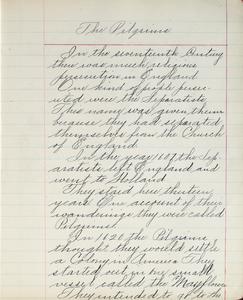 The Pilgrims
In the seventeenth Century
there was much religious
persecution in England
One kind of people perse-
cuted were the Separatists
This name was given them
because they had separated
themselves from the Church
of England
In the year 1607 the Sep-
aratists left England and
went to Holland
They staid here thirteen
years One account of their
wanderings they were called
Pilgrims
In 1620 the Pilgrims
thought they would settle
a Colony in America They
started out in the small
vessel called the Mayflower
They intended to go to the